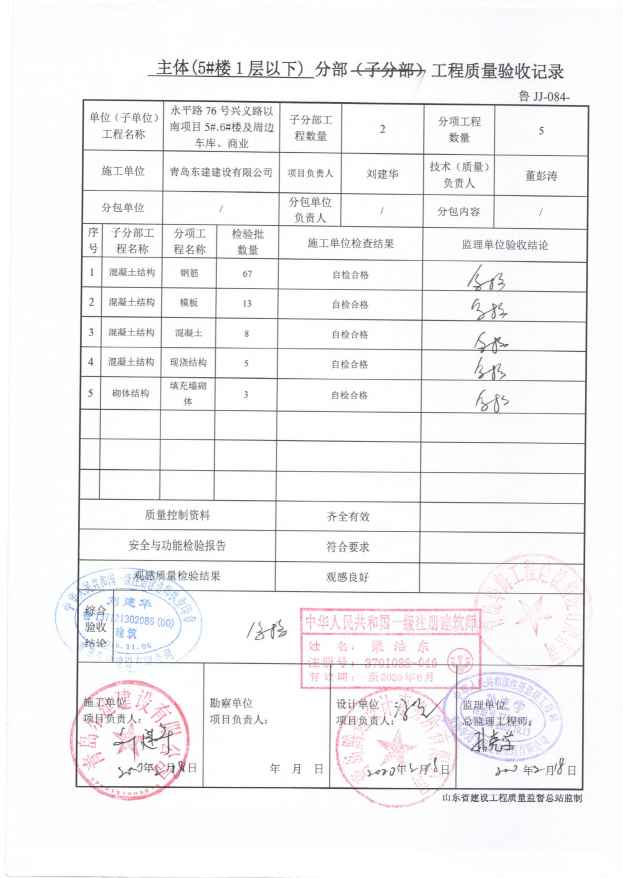 主体(5#楼1层以下) 分部(子分部)工程质量验收记录
鲁 JJ-084-
单位（子单位）工程名称 永平路76号兴义路以南项目5#.6#楼及周边车库、商业 子分部工程数量 2 分项工程数量 5
施工单位 青岛东建建设有限公司 项目负责人 刘建华 技术（质量）负责人 董彭涛
分包单位 / 分包单位负责人 / 分包内容 /
序号 子分部工程名称 分项工程名称 检验批数量 施工单位检查结果 监理单位验收结论
1 混凝土结构 钢筋 67 自检合格 合格
2 混凝土结构 模板 13 自检合格 合格
3 混凝土结构 混凝土 8 自检合格 合格
4 混凝土结构 现浇结构 5 自检合格 合格
5 砌体结构 填充墙砌体 3 自检合格 合格
质量控制资料 齐全有效
安全与功能检验报告 符合要求
观感质量检验结果 观感良好
综合验收结论 合格
刘建华
建筑
中华人民共和国一级注册建筑师
姓名：
注册号：3701086-046
有效期：至2020年6月
施工单位 项目负责人：
勘察单位 项目负责人：
设计单位 项目负责人：
监理单位 总监理工程师：
年 月 日
2020年2月18日
山东省建设工程质量监督总站监制